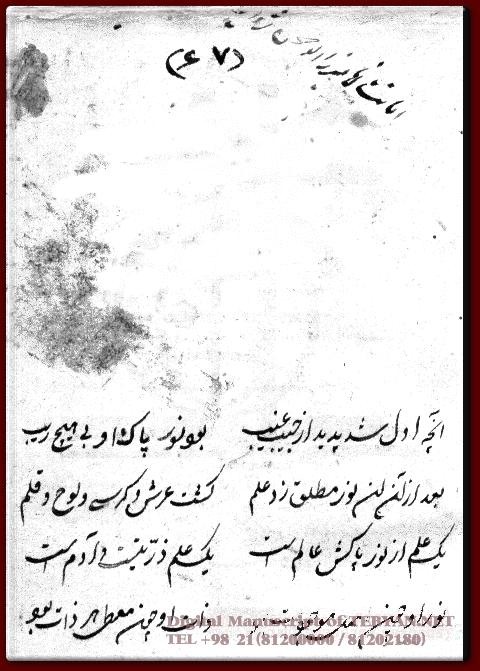 (٦٧)
آنچه اول شد پدید از جیب غیب   بود نور پاک او بی هیچ ریب
بعد از آن آن نور مطلق زد علم   گشت عرش و کرسی و لوح و قلم
یک علم از نور پاکش عالم است   یک علم ذریتست و آدم است
نور او چون   ذات او چون معطی هر ذات بود
Digital Manuscript of TEBYAN.NET
TEL +98 21(81200000 / 81202180)